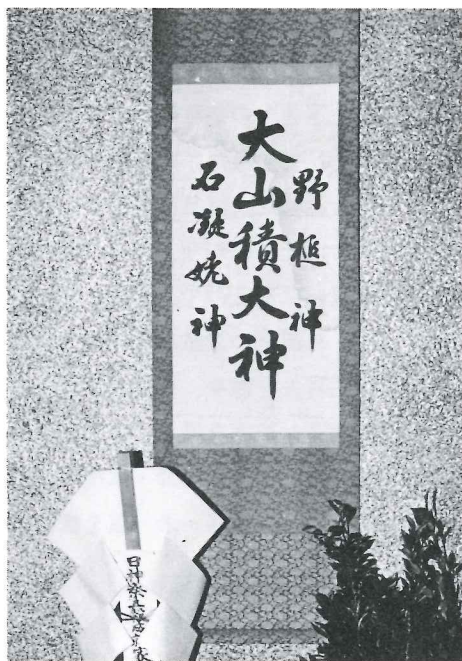 野椎神
大山積大神
石凝姥神